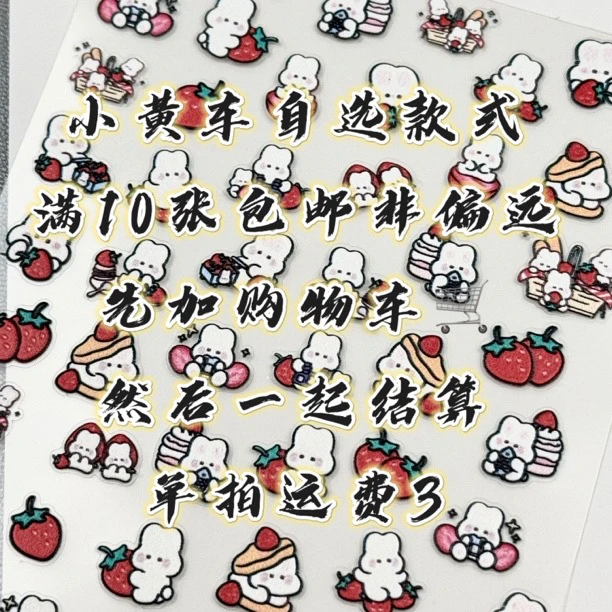 小黄车自选款式
满10张包邮非偏远
先加购物车
然后一起结算
单拍运费3